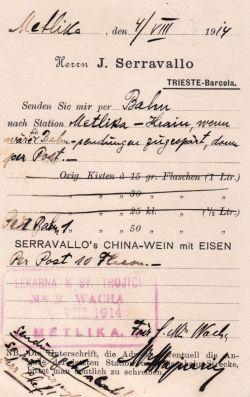 Metlika, den 4/VIII 1914
Herrn J. Serravallo
TRIESTE-Barcola.
Senden Sie mir per Bahn
nach Station Metlika - Krain, wenn
wäre Bahn-sendungen gesperrt, dann
per Post.
Orig. Kisten à 15 gr. Flaschen (1 Ltr.)
" " " 30 " " "
" " " 25 kl. " (½ Ltr.)
Per Bahn 1 " " 50 " " "
SERRAVALLO's CHINA-WEIN mit EISEN
Per Post 10
LEKARNA K SV. TROJICI
Mr. M. WACHA
VIII. 1914
METLIKA.
Mr. Wacha
NB. Die Unterschrift, die Adresse, eventuell die An-
der Station
bittet man deutlich zu schreiben.